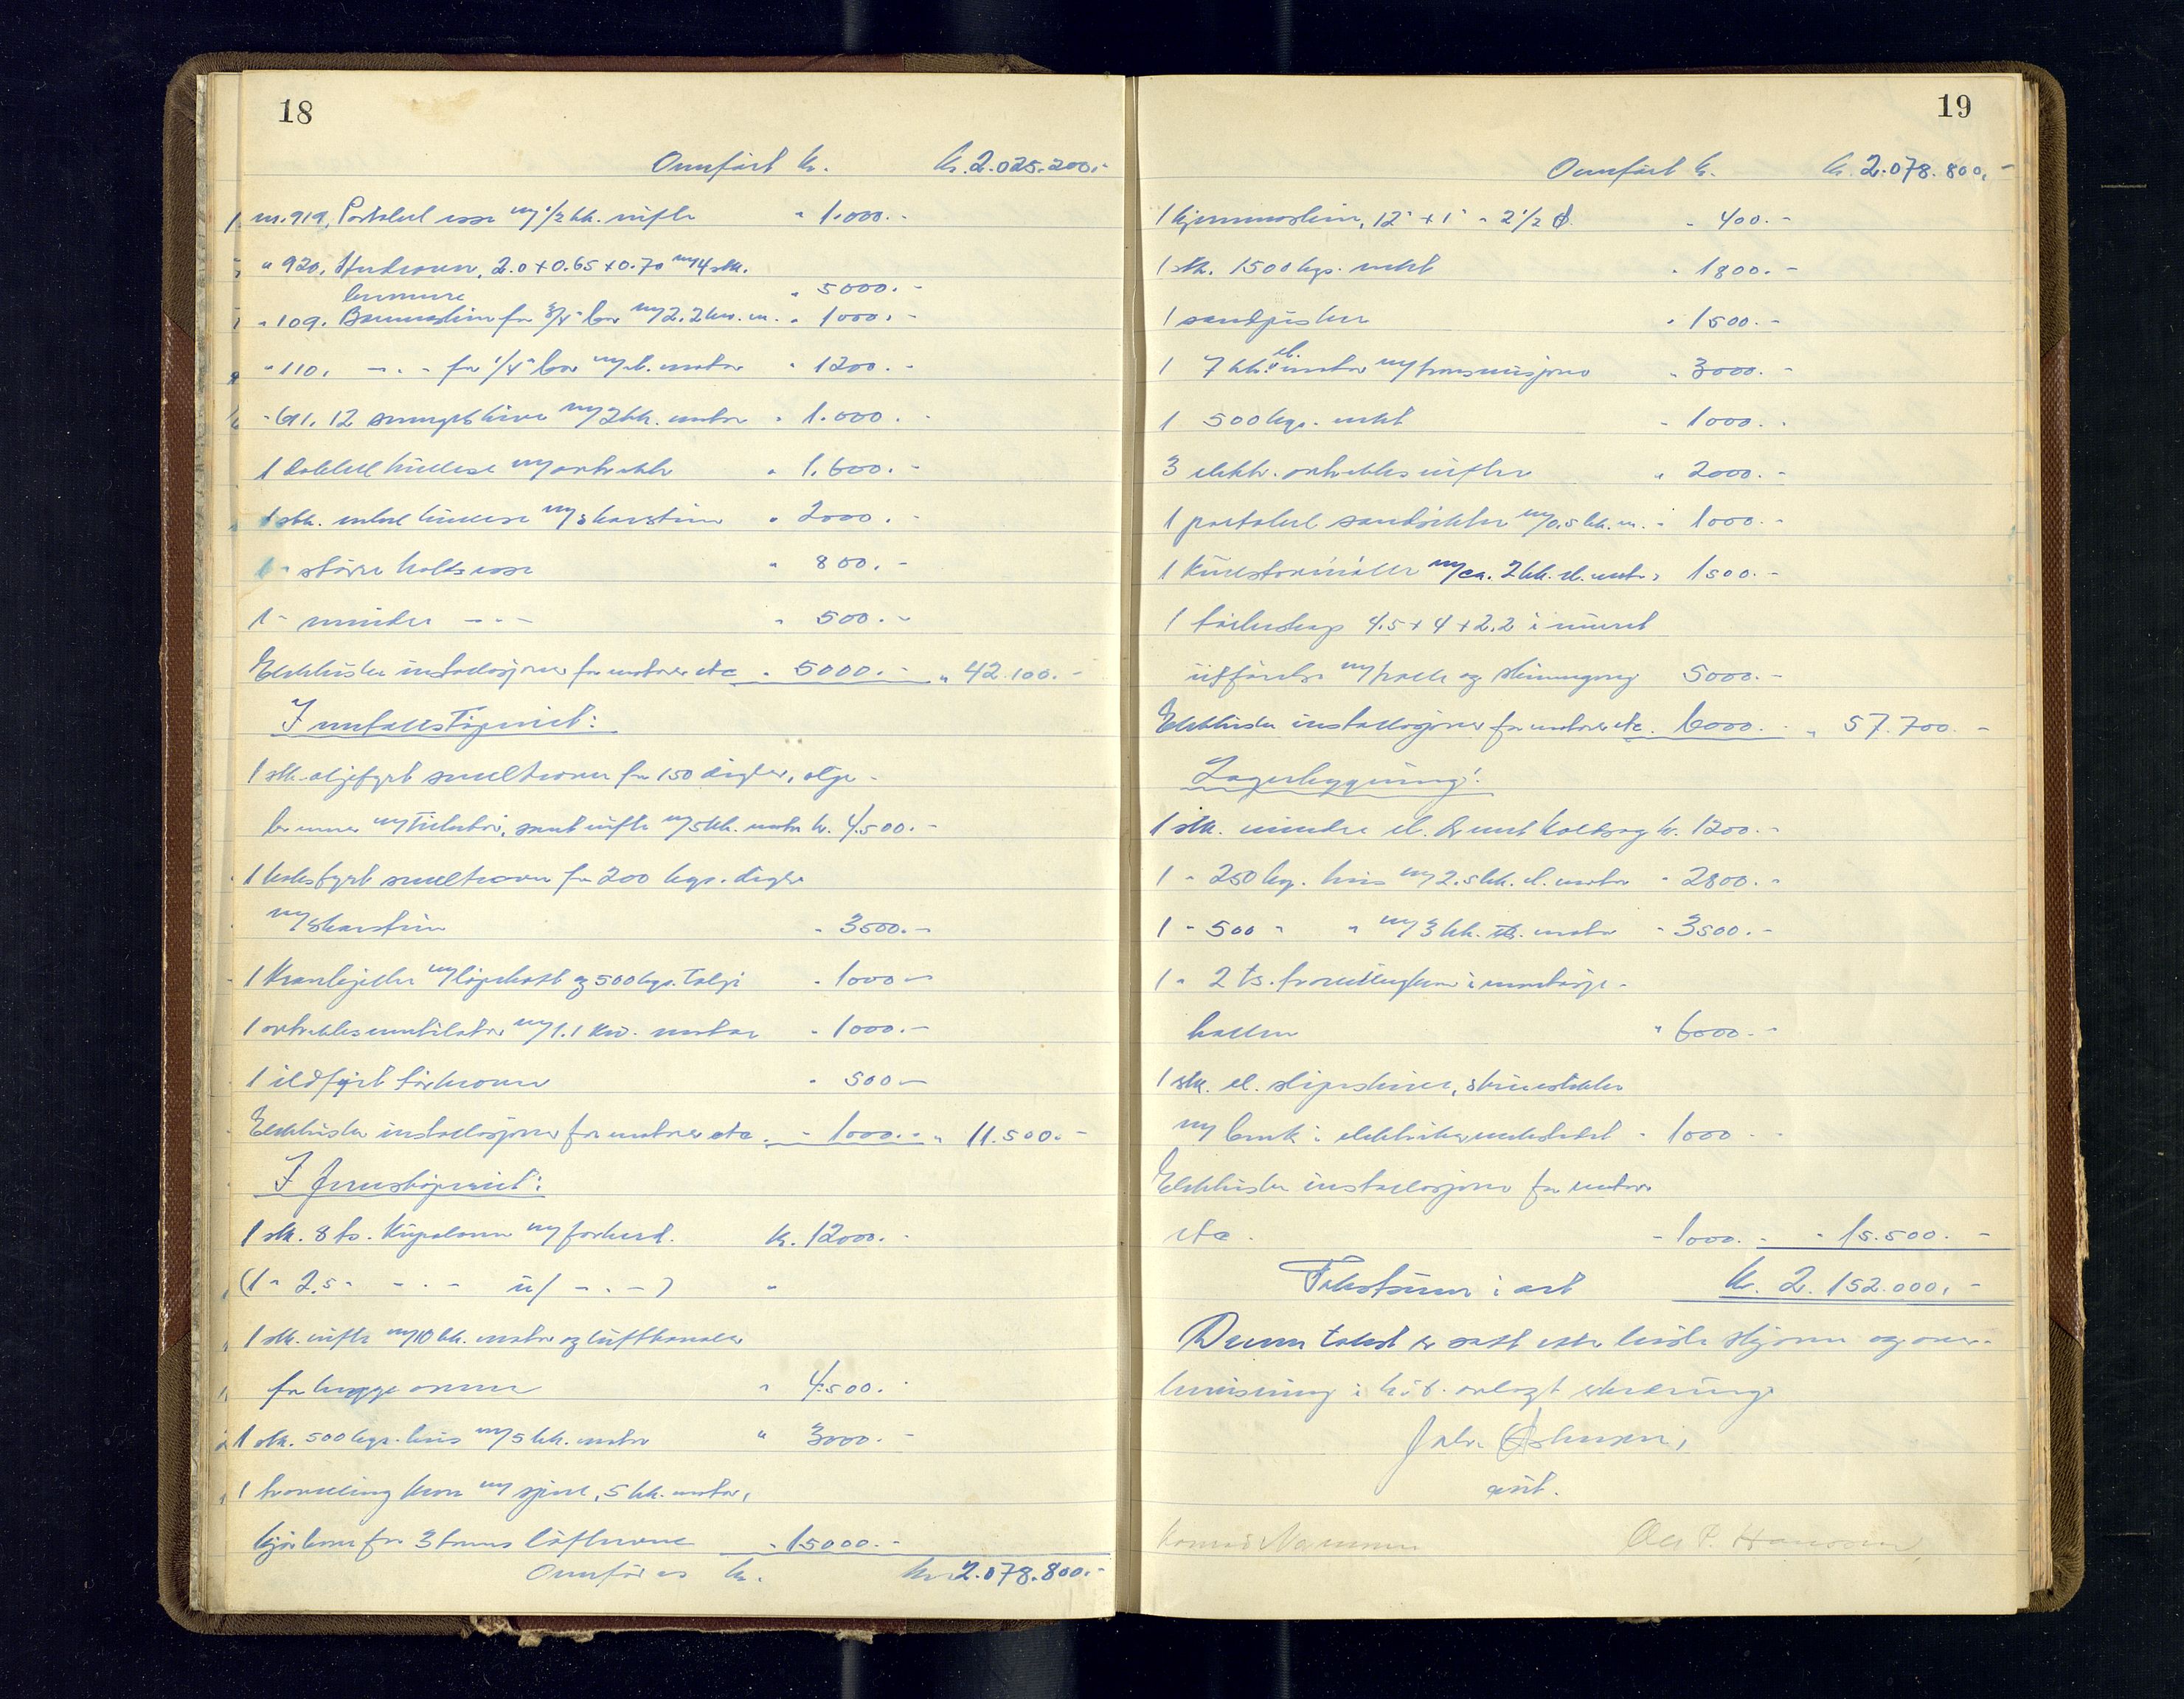 18
Overført kr. kr. 2.025.200.-
nr. 919, Portabel esse m/ 1/2 hk. vifte " 1.000.-
" 920, Herdeovn, 2.0 x 0.65 x 0.70 m/4 stk.
brennere " 5000.-
" 109. Boremaskin for 3/4" bor m/2.2 kw. m. " 1000.-
" 110. - " - for 1/4" bor m/el. motor " 1200.-
12 m/2 hk. motor " 1.000.-
1 dobbelt m/avtrekk " 1.600.-
1 stk. enkel m/skorstein " 2000.-
1 " større esse " 800.-
1 " mindre - " - " 500.-
Elektriske installasjoner for motorer etc " 5000.- " 42.100.-
I metallstøperiet:
1 stk. oljefyrt smelteovn for 150 digler, olje-
brenner m/tilbehør, samt vifte m/5 hk. motor kr. 4.500.-
1 koksfyrt smelteovn for 200 kgs. digler
m/skorstein " 3500.-
1 kranbjelke m/løpekatt og 500 kgs. talje " 1000.-
1 avtrekksventilator m/1.1 kw. motor " 1000.-
1 ildfyrt tørkeovn " 500.-
Elektriske installasjoner for motorer etc. " 1000.- " 11.500.-
I jernstøperiet:
1 stk. 8 ts. kupolovn m/forherd. kr. 12000.-
(1 " 2.5 " - " - u/ - " - ) "
1 stk. vifte m/10 hk. motor og luftkanaler
for begge ovner " 4.500.-
1 stk. 500 kgs. heis m/5 hk. motor " 3000.-
1 travelling kran m/spill, 5 hk. motor,
kjørbane for 3 tonns løfteevne " 15000.-
Overføres kr. kr. 2.078.800.-
19
Overført kr. kr. 2.078.800.-
1 kjernemaskin, 12" x 1" - 2 1/2 ø. " 400.-
1 stk. 1500 kgs. vekt " 1800.-
1 sandpisker " 1500.-
1 7 hk. el. motor m/transmisjoner " 3000.-
1 500 kgs. vekt " 1000.-
3 elektr. avtrekksvifter " 2000.-
1 portabel sandsikter m/0.5 hk. m. " 1000.-
1 m/ca. 2 hk. el. motor " 1500.-
1 tørkeskap 4.5 x 4 x 2.2 i muret
utførelse m/tralle og skinnegang 5000.-
Elektriske installasjoner for motorer etc. 6000.- " 57.700.-
Lagerbygning:
1 stk. mindre el. drevet kaldsag kr. 1200.-
1 " 250 kg. heis m/2.5 hk. el. motor " 2800.-
1 " 500 " " m/3 hk. el. motor " 3500.-
1 " 2 ts. travellingkran i montasje-
hallen " 6000.-
1 stk. el. slipeskive, skruestikke
m/benk i elektrikerverkstedet " 1000.-
Elektriske installasjoner for motorer
etc. " 1000.- " 15.500.-
Takstsum i alt kr. 2.152.000,-
Denne takst er satt etter beste skjønn og over-
bevisning i h.t. avlagt erklæring.